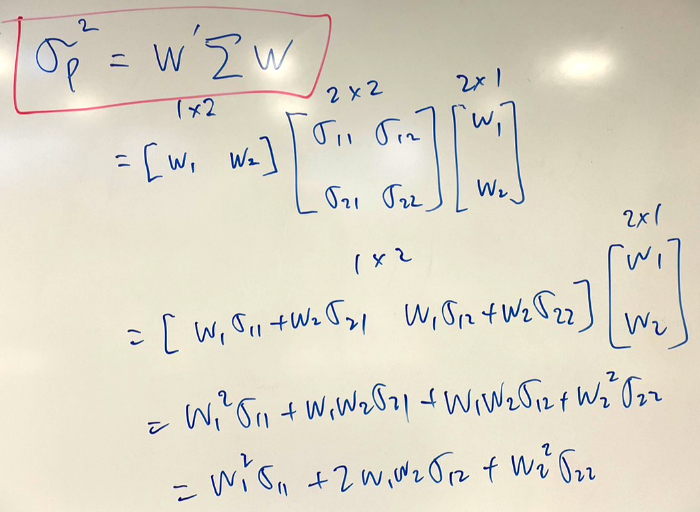 σₚ² = W′ Σ W
1×2 2×2 2×1
= [W₁ W₂] [σ₁₁ σ₁₂ σ₂₁ σ₂₂] [W₁ W₂]
1×2 2×1
= [W₁σ₁₁+W₂σ₂₁ W₁σ₁₂+W₂σ₂₂] [W₁ W₂]
= W₁²σ₁₁ + W₁W₂σ₂₁ + W₁W₂σ₁₂ + W₂²σ₂₂
= W₁²σ₁₁ + 2W₁W₂σ₁₂ + W₂²σ₂₂